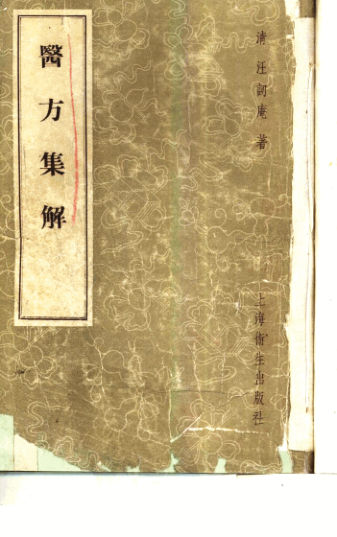 醫方集解
清 汪訒庵 著
上海衛生出版社